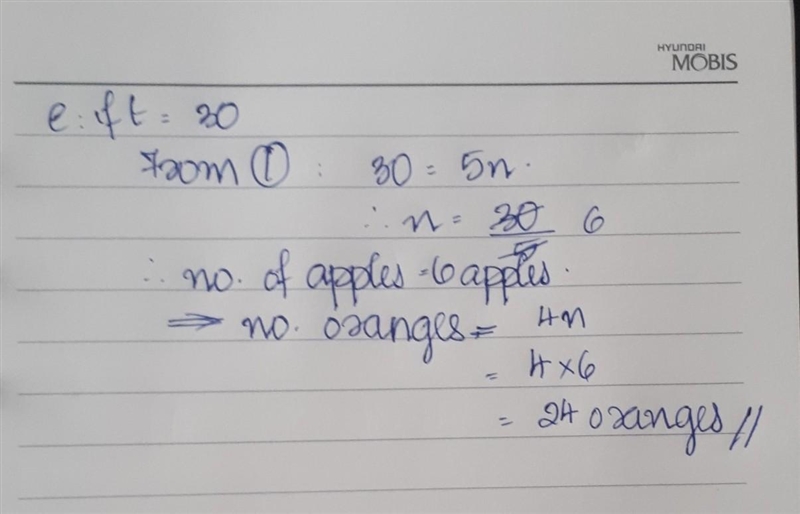 HYUNDAI
MOBIS
e: if t = 30
From ① : 30 = 5n.
∴ n = 30/5 6
∴ no. of apples = 6 apples.
⇒ no. oranges = 4n
= 4 × 6
= 24 oranges //